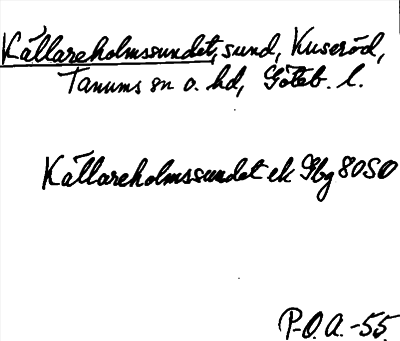 Källareholmssundet, sund, Kuseröd,
Tanums sn o. hd, Göteb. l.
Källareholmssundet ek Gbg 8050
P-O.A. -55.